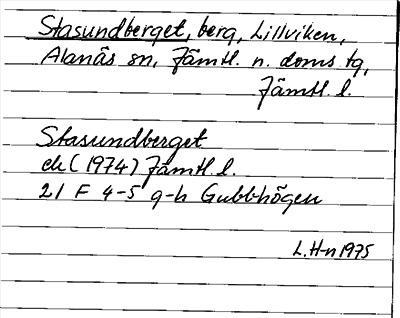 Stasundberget, berg, Lillviken,
Alanäs sn, Jämtl. n. doms. tg,
Jämtl. l.
Stasundberget
ek (1974) Jämtl. l.
21 F 4-5 g-h Gubbhögen
L. H-n 1975